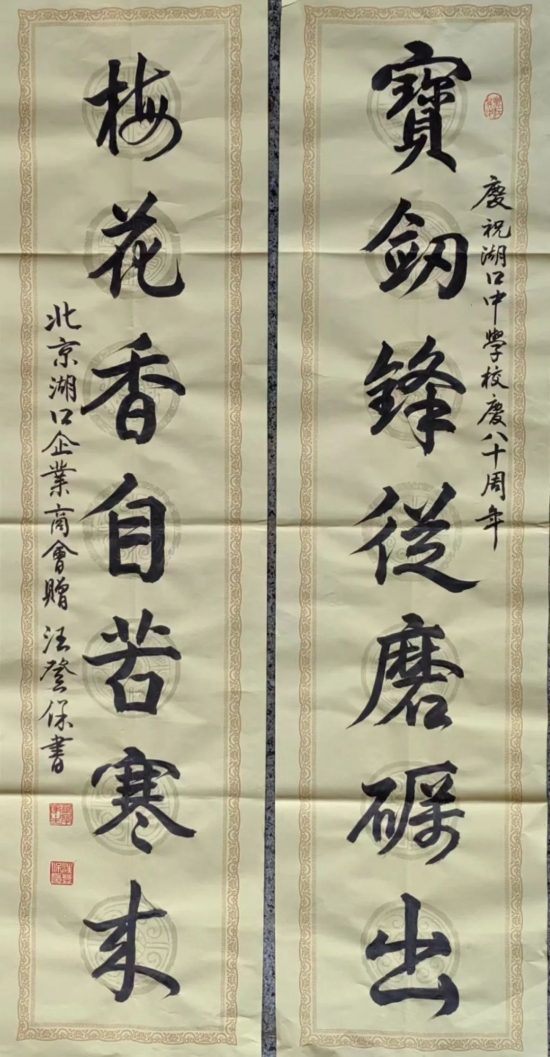 慶祝湖口中學校慶八十周年
寶劔鋒從磨礪出
梅花香自苦寒來
北京湖口企業商會贈 汪登保書